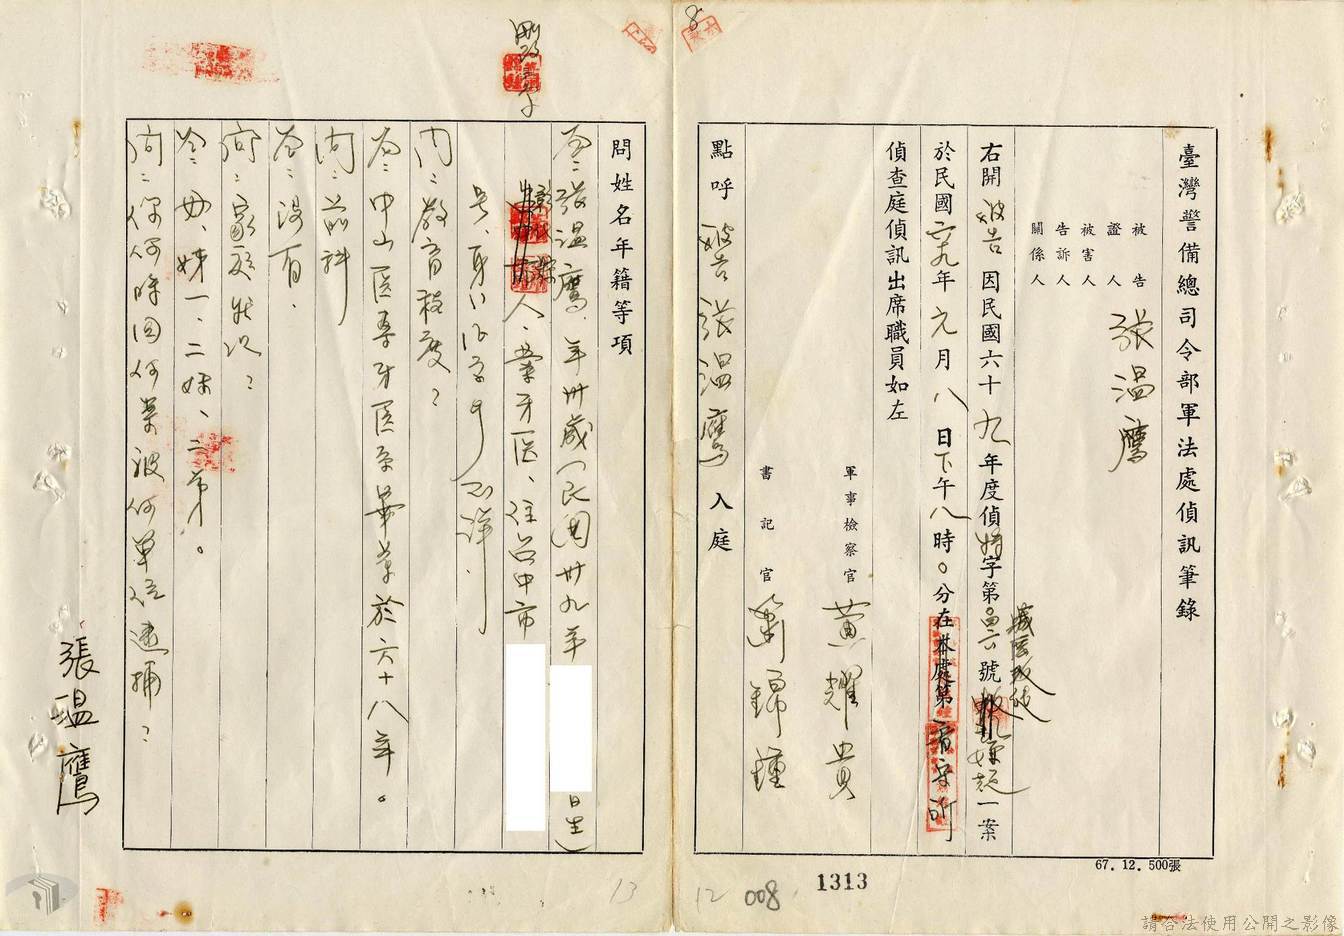 臺灣警備總司令部軍法處偵訊筆錄
被告
證人
被害人
告訴人
關係人
張温鷹
右開被告因民國六十九年度偵特字第046號叛亂嫌疑一案
於民國六九年元月八日下午八時0分在本處第看守所
偵查庭偵訊出席職員如左
軍事檢察官 黃耀貴
書記官 簫錦鍾
點呼 被告張温鷹入庭
67.12.500張
1313
008
12
8
問姓名年籍等項
答:張温鷹、年卅歲(民國卅九年 日生)
人、業牙医、住台中市
號、身
問:教育程度?
答:中山医專牙医系畢業於六十八年。
問:前科
答:沒有.
問:家庭狀況?
答:母、姊一、二妹、二弟。
問:你何時因何案被何單位逮捕?
張温鷹
13
請合法使用公開之影像